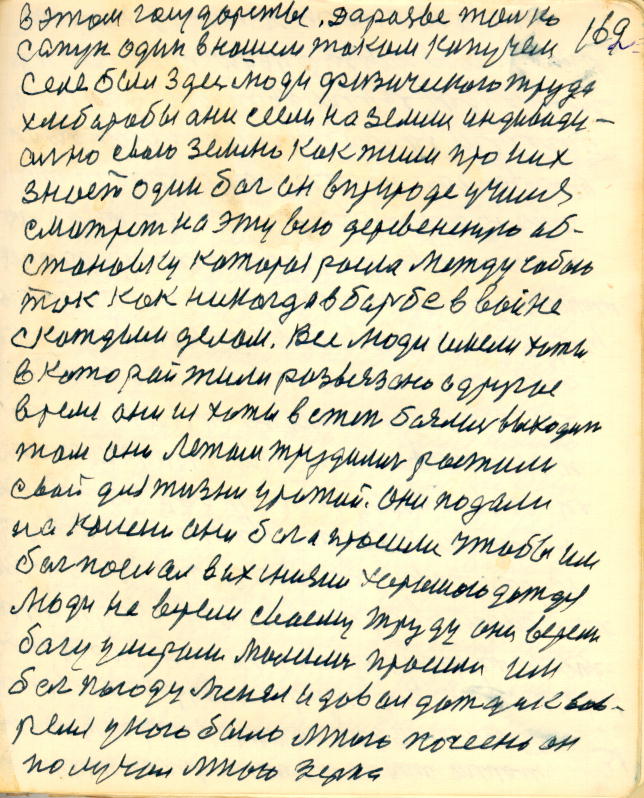 в этом государстве. Дарагое толко
сапун один в нашем таком кипучем
селе были здесь люди физического труда
хлебаробы ани сеели на земли индивиди-
ално свою землю как жили про них
знает один бог он в природе учился
смотреть на эту всю деревенскую аб-
становку которая росла между собою
так как никогда в барбе в войне
с каждым делом. Все люди имели хаты
в которай жили развязано а другое
время они из хаты в степ баялись выходить
там они летом трудилис растили
свой для жизни урожай. они падали
на колени они бога просили чтобы им
бог послал в их жизни хорошого дождя
люди не верели своему труду они верели
богу умирали молилис просили им
бог погоду менял и довал дождик вов-
ремя у кого было много посеено он
получал много зерна
169